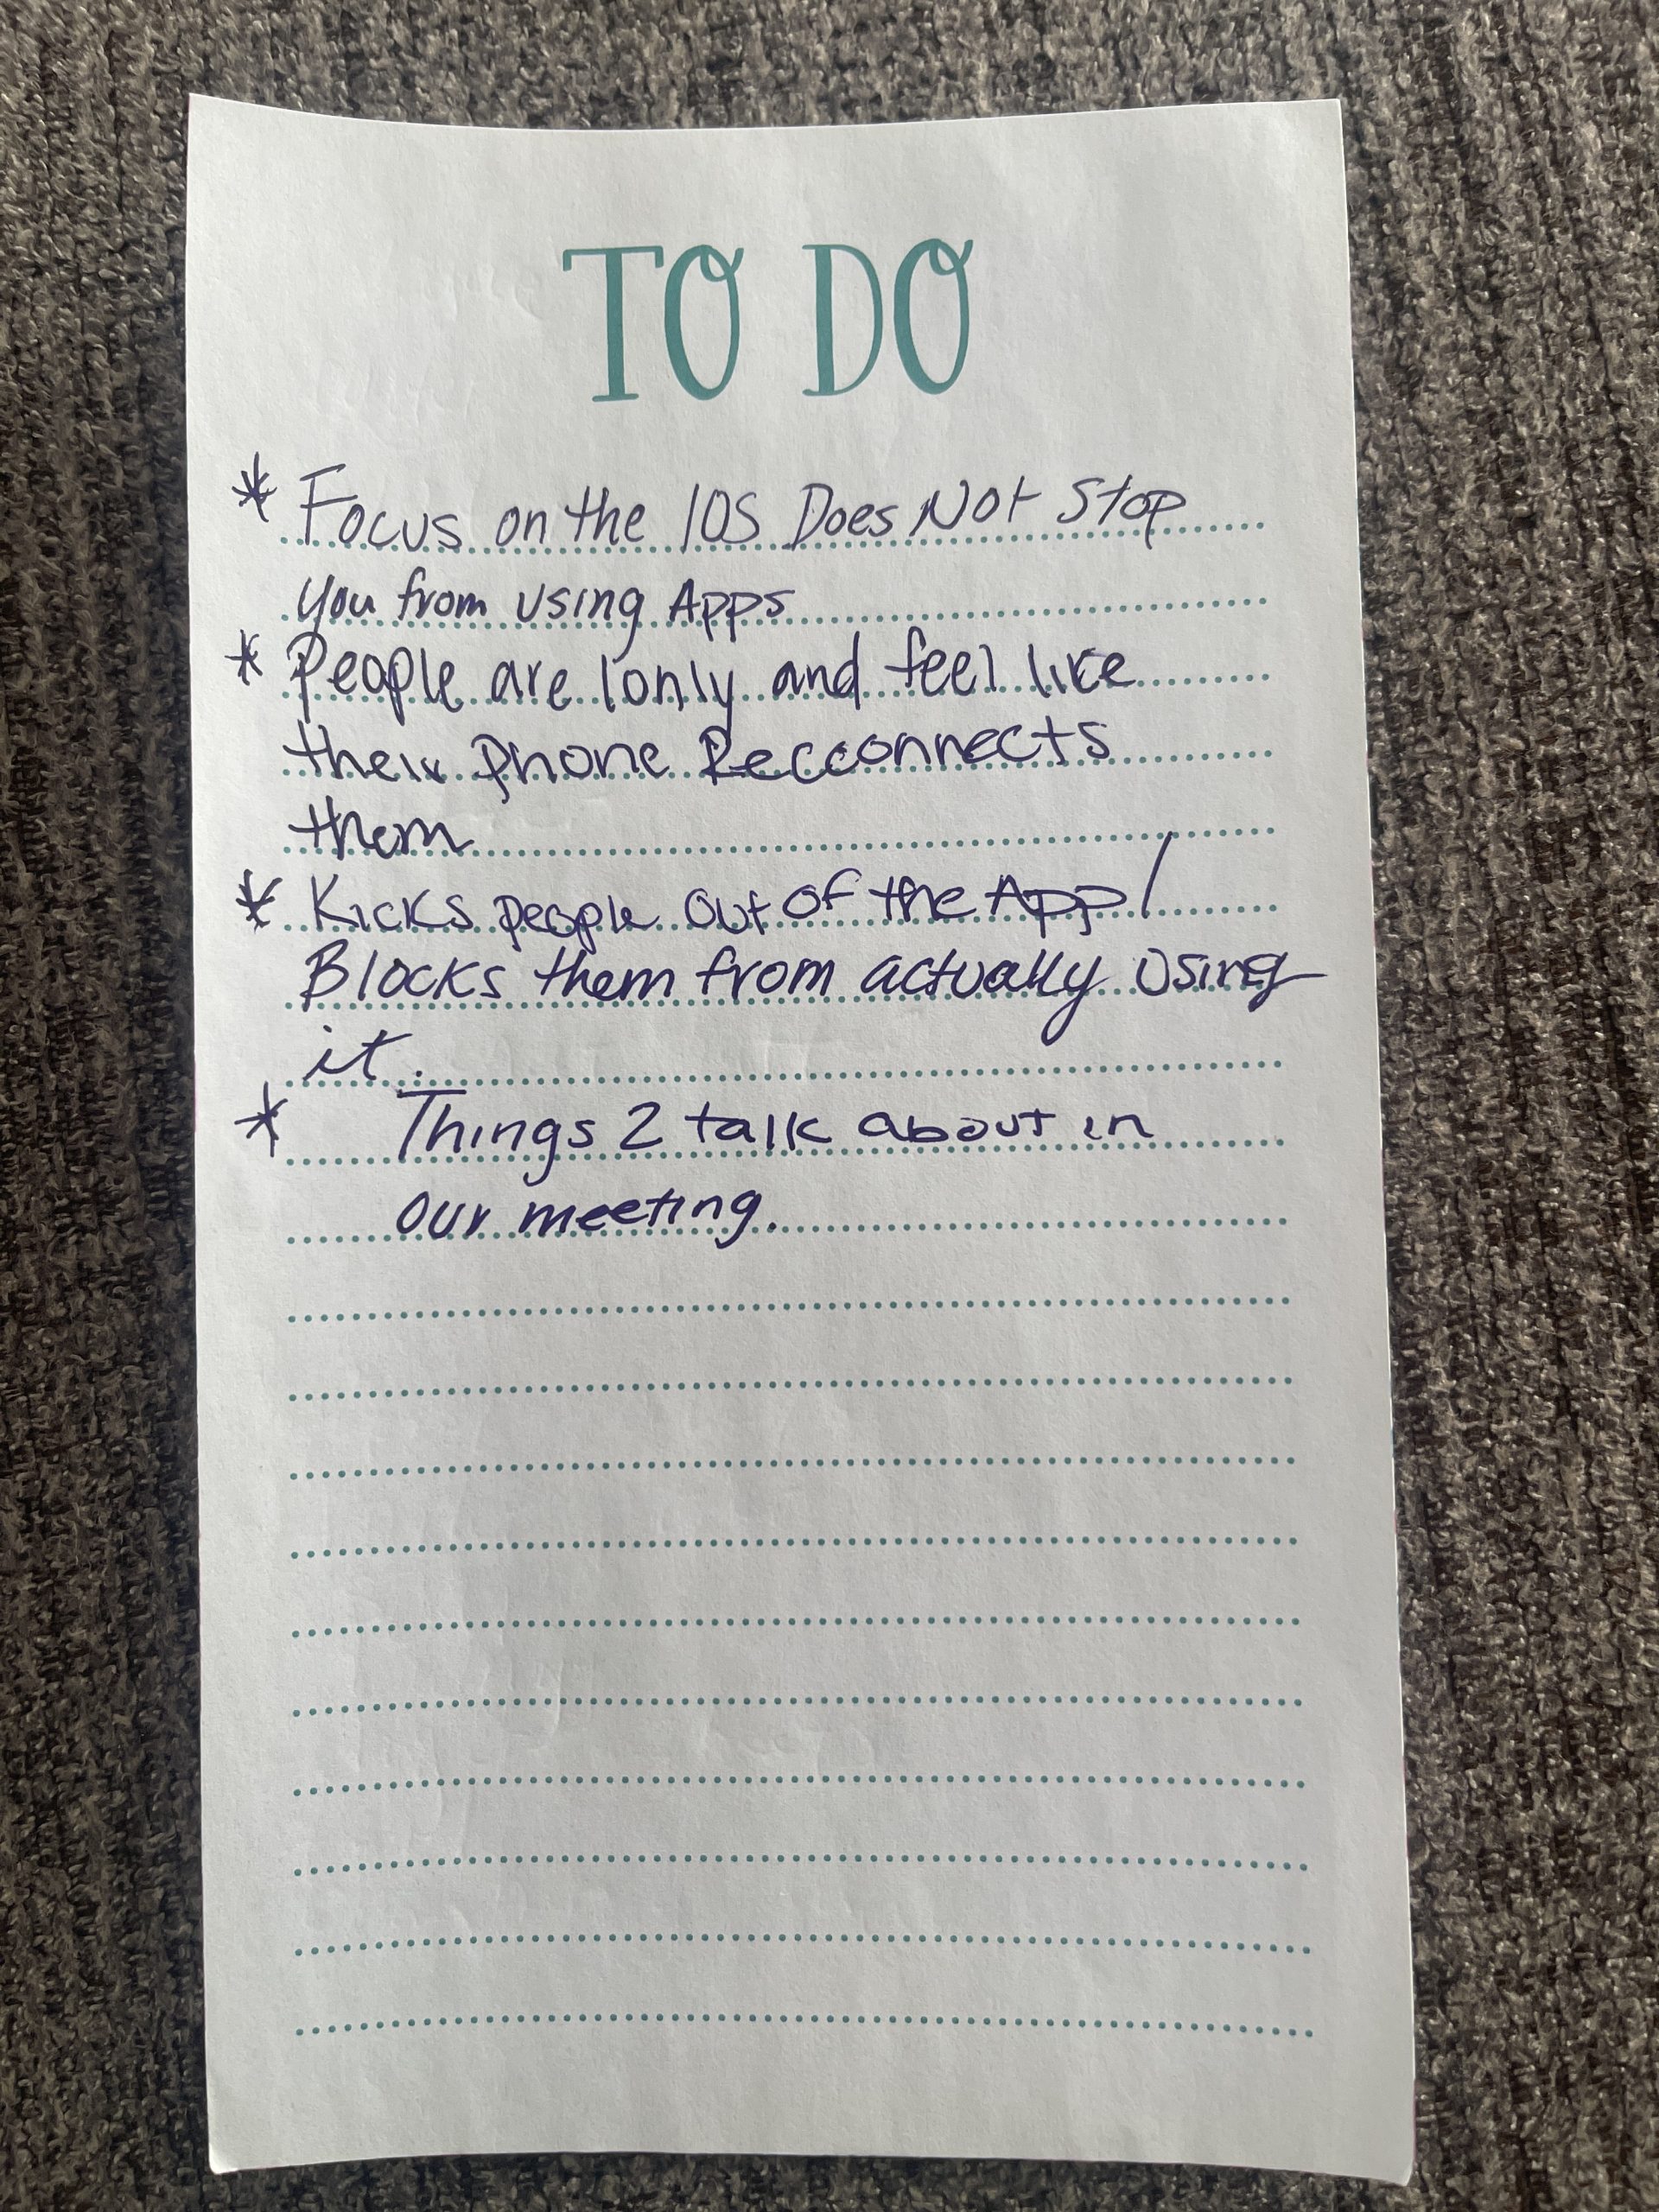 TO DO
* Focus on the IOS Does Not Stop
You from using Apps
* People are lonly and feel like
their Phone Recconnects
them
* Kicks people out of the App/
Blocks them from actually using
it.
* Things 2 talk about in
our meeting.